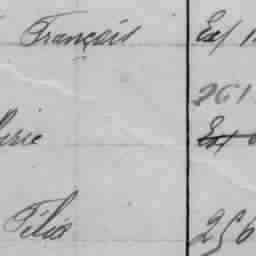 François Ex/
261
erie Ex/
Félix 256